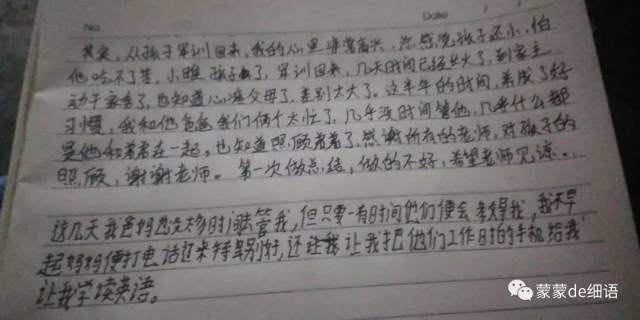 No.
Date
其实，从孩子军训回来，我的心里非常高兴，总感觉孩子还小，怕
他吃不了苦，小瞧孩子了，军训回来，几天时间已经长大了，到家主
动干家务了，也知道心疼父母了，差别太大了，这半年的时间，养成了好
习惯，我和他爸爸我们俩个太忙了，几乎没时间管他，几乎什么都
是他和哥哥在一起。也知道照顾哥哥了，感谢所有的老师，对孩子的
照顾，谢谢老师。第一次做总结，做的不好，希望老师见谅。
这几天我爸妈也没多时间管我，但只要一有时间他们便会考我，我早
起妈妈便打电话过来特别好，还让我把他们工作时的手机给我
让我学读英语。
蒙蒙de细语